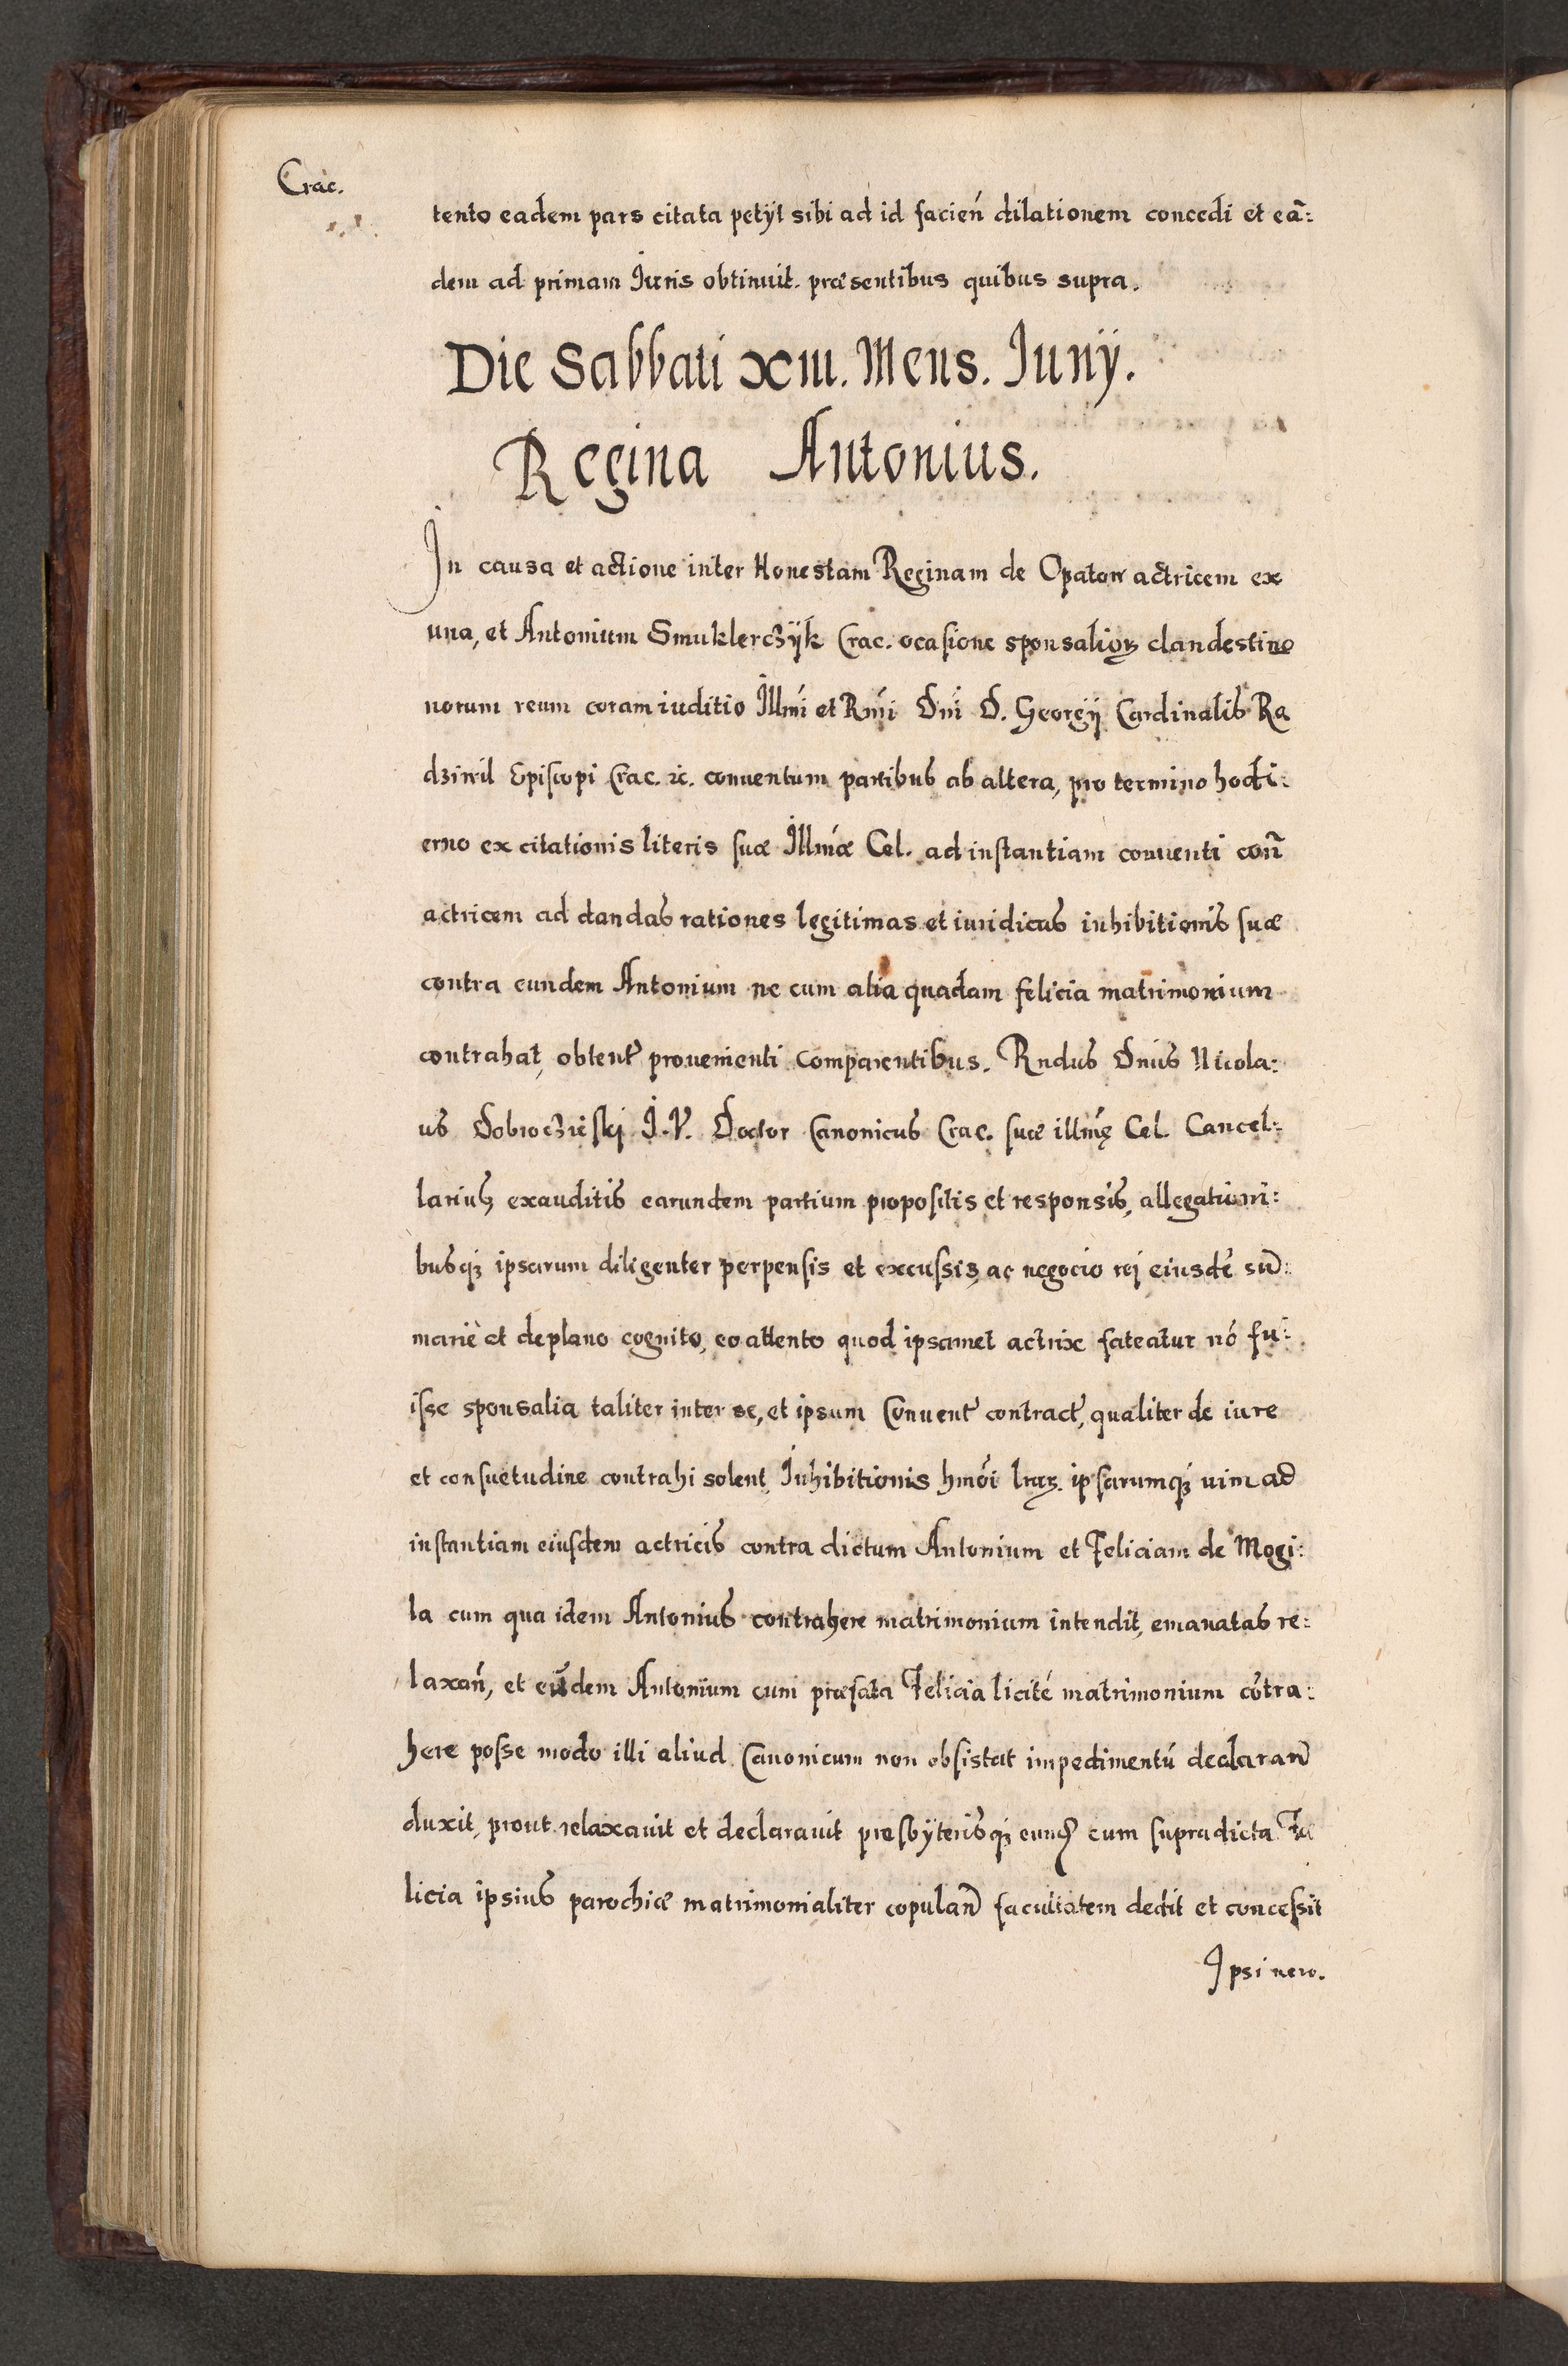 Crac.
tento eadem pars citata petÿt sibi ad id facień dilationem concedi et eã:
dem ad primam Iuris obtinuit. præsentibus quibus supra.
Die Sabbati XIII. Mens. Iunÿ.
Regina Antonius.
In causa et actione inter Honestam Reginam de Opatow actricem ex
una, et Antonium Smuklerczÿk Crac. ocasione sponsalioꝝ clandestino
norum reum coram iuditio Illmi et Rmi Dni D. Georgÿ Cardinalis Ra
dziwil Episcopi Crac. ꝛc. conuentum partibus ab altera, pro termino hodi:
erno ex citationis literis suæ Illmæ Cel. ad instantiam conuenti coñ
actricem ad dandas rationes legitimas et iuridicas inhibitionis suæ
contra eundem Antonium ne cum alia quadam felicia matrimonium
contrahat, obtent̃ prouenienti comparentibus. Rndus Dnus Nicola:
us Dobroczieskj I.V. Doctor Canonicus Crac. suæ illmę Cel. Cancel:
larius, exauditis earundem partium propositis et responsis, allegationi:
busqꝫ ipsarum diligenter perpensis et excussis, ac negocio rej eiusdẽ sũ:
mariè et de plano cognito, eo attento quod ipsamet actrix fateatur nõ fu:
isse sponsalia taliter inter se, et ipsum Conuent̃ contract̃, qualiter de iure
et consuetudine contrahi solent, Inhibitionis hmõi lrarꝝ. ipsarumqꝫ uim ad
instantiam eiusdem actricis contra dictum Antonium et Feliciam de Mogi:
la cum qua idem Antonius contrahere matrimonium intendit, emanatas re:
laxañ, et eũdem Antonium cum præfata Felicia licitè matrimonium cõtra:
here posse modo illi aliud Canonicum non obsistat impedimentũ declarañ
duxit, prout relaxauit et declarauit presbÿterisqꝫ eund̃ cum supradicta Fe
licia ipsius parochiæ matrimonialiter copulañ facultatem dedit et concessit
Ipsi uero.